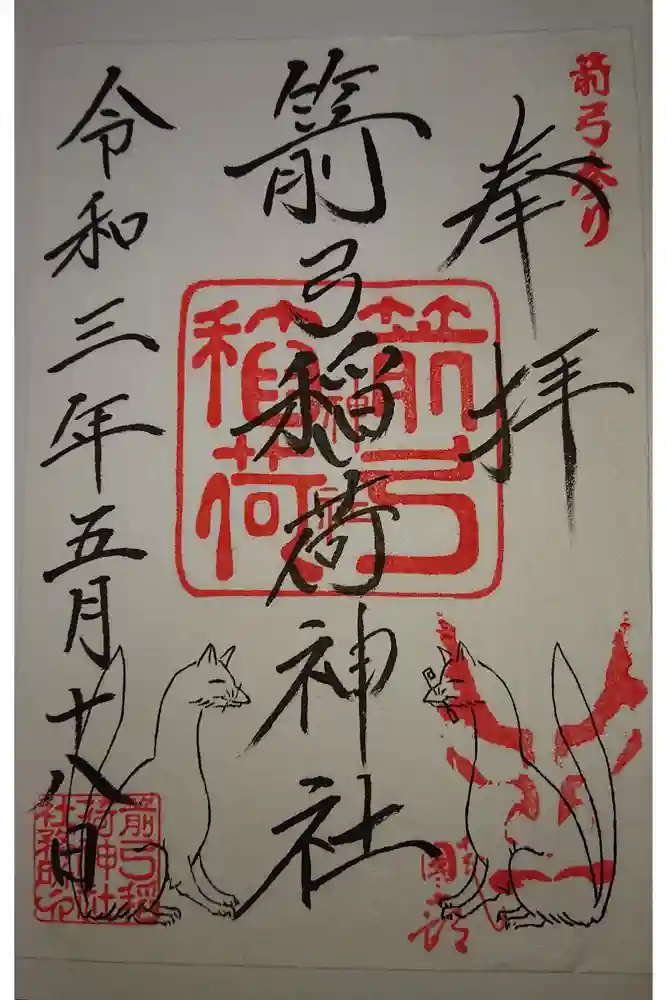 箭弓参り
奉拝
箭弓稲荷神社
令和三年五月十八日
箭弓
稲荷
神社
箭弓稲
荷神社
社務所印